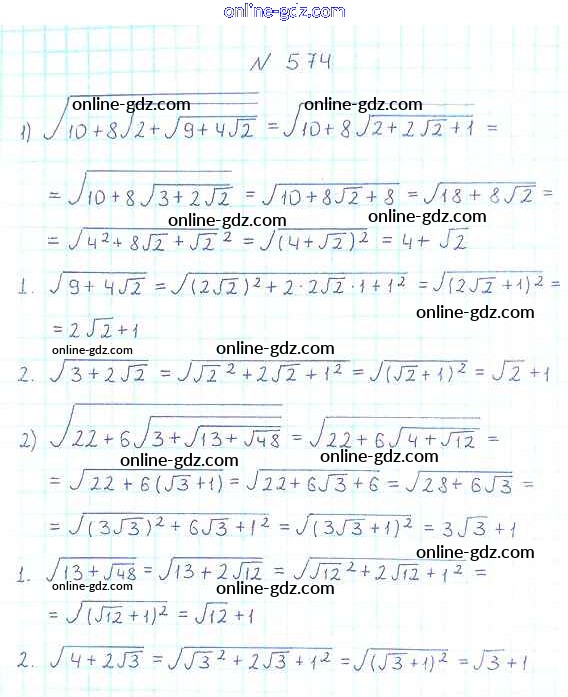 online-gdz.com
N 574
online-gdz.com online-gdz.com
1) √(10+8√(2+√(9+4√2))) = √(10+8√(2+2√2+1)) =
= √(10+8√(3+2√2)) = √(10+8√2+8) = √(18+8√2) =
online-gdz.com online-gdz.com
= √(4²+8√2+√2²) = √((4+√2)²) = 4+√2
1. √(9+4√2) = √((2√2)²+2·2√2·1+1²) = √((2√2+1)²) =
online-gdz.com
= 2√2+1
online-gdz.com online-gdz.com
2. √(3+2√2) = √(√2²+2√2+1²) = √((√2+1)²) = √2+1
2) √(22+6√(3+√(13+√48))) = √(22+6√(4+√12)) =
online-gdz.com online-gdz.com
= √(22+6(√3+1)) = √(22+6√3+6) = √(28+6√3) =
= √((3√3)²+6√3+1²) = √((3√3+1)²) = 3√3+1
online-gdz.com
1. √(13+√48) = √(13+2√12) = √(√12²+2√12+1²) =
online-gdz.com online-gdz.com
= √((√12+1)²) = √12+1
online-gdz.com
2. √(4+2√3) = √(√3²+2√3+1²) = √((√3+1)²) = √3+1